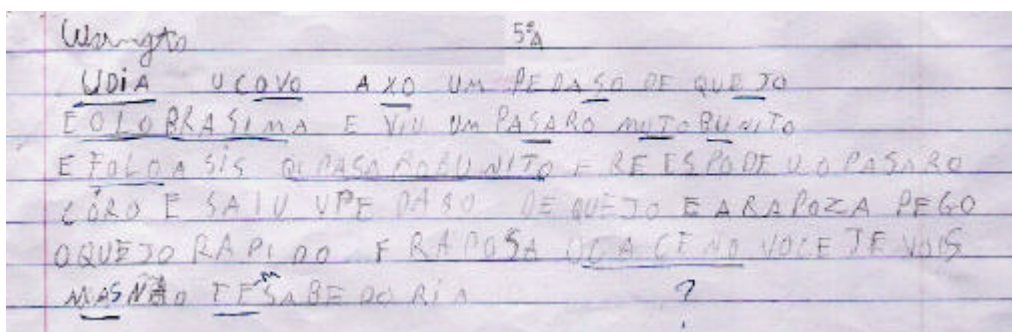 5ªA
UDIA UCOVO AXO UM PEDASO DE QUEJO
E OLOBRASIMA E VIU UM PASARO MUTOBUNITO
E FOLOA SIS QI PASAROBUNITO E RE ESPODEU O PASARO
CORO E SAIU UPE DASO DE QUEJO E ARAPOZA PEGO
OQUEJO RAPIDO E RAPOSA VOCE TE VOIS
MAS NÃO TEM SABEDORIA ?